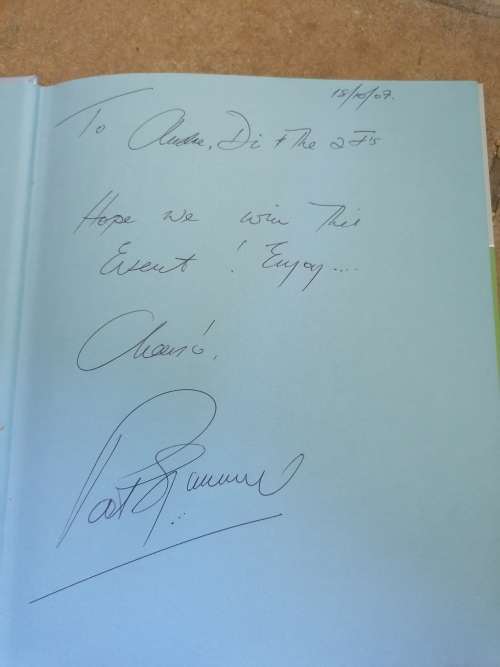 18/10/07.
To Andre, Di + The 2 J's
Hope we win This
Event ! Enjoy....
Cheers!,
Pat